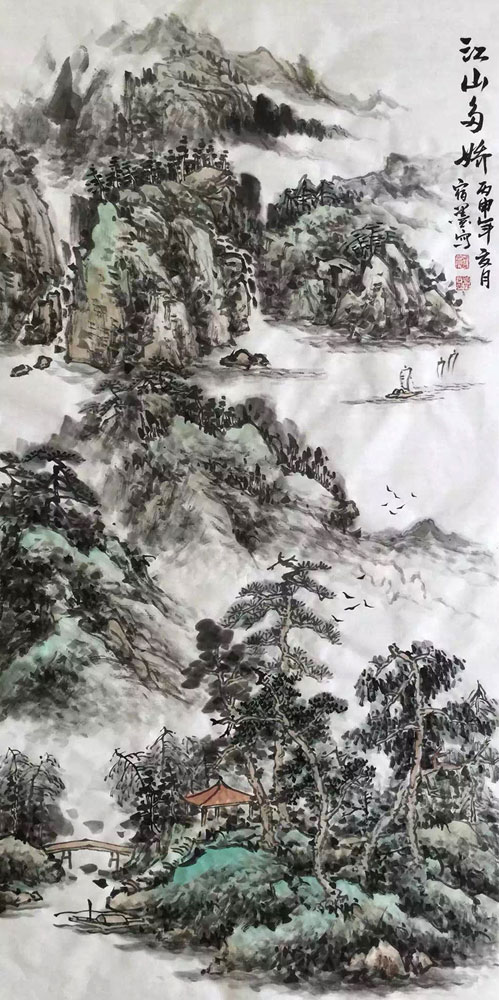 江山多娇
丙申年亥月
宿墨写